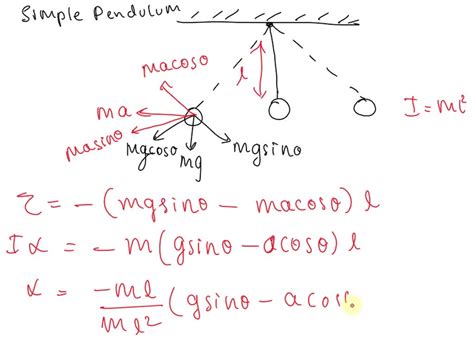 Simple Pendulum
macosθ
l
ma
I = ml²
masinθ
mgcosθ
mg
mgsinθ
τ = -(mgsinθ - macosθ) l
Iα = -m(gsinθ - acosθ) l
α = -ml/ml² (gsinθ - acos